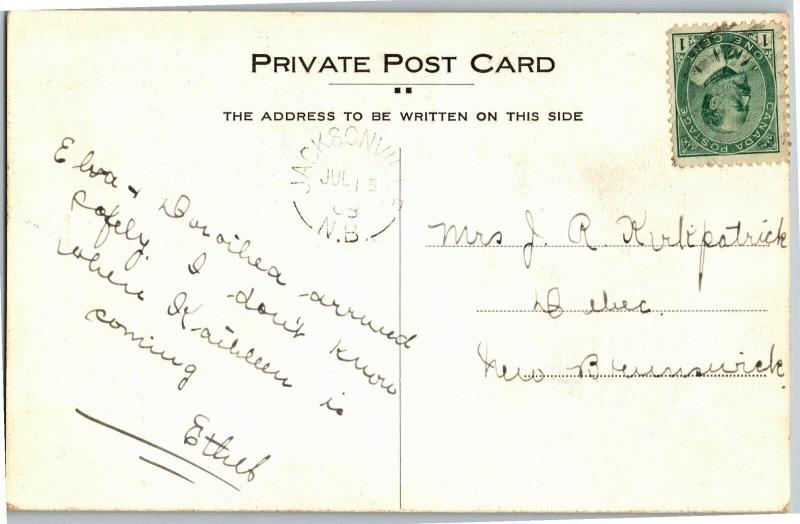 PRIVATE POST CARD
THE ADDRESS TO BE WRITTEN ON THIS SIDE
CANADA POSTAGE
ONE CENT
1 1
JACKSONVILLE
JUL 15
08
N.B.
Elva + Dorothea arrived
safely. I don't know
when Kathleen is
coming
Ethel
Mrs J. R. Kirkpatrick
Debec.
New Brunswick.